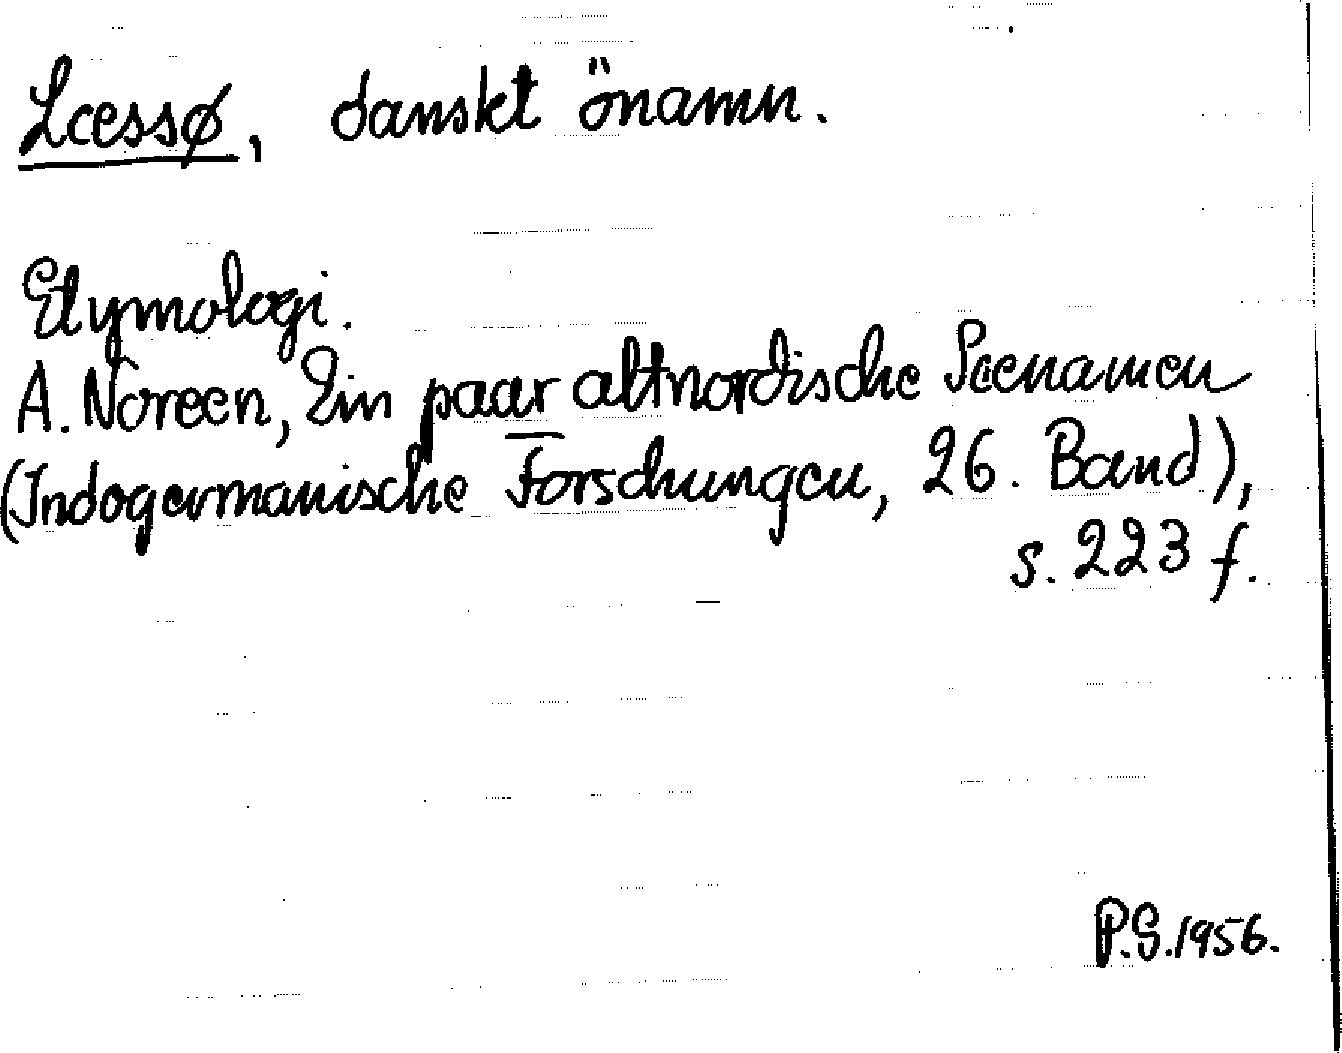 Læssø, danskt önamn.
Etymologi.
A. Noreen, Ein paar altnordische Seenamen
(Indogermanische Forschungen, 26. Band),
s. 223 f.
P.S. 1956.